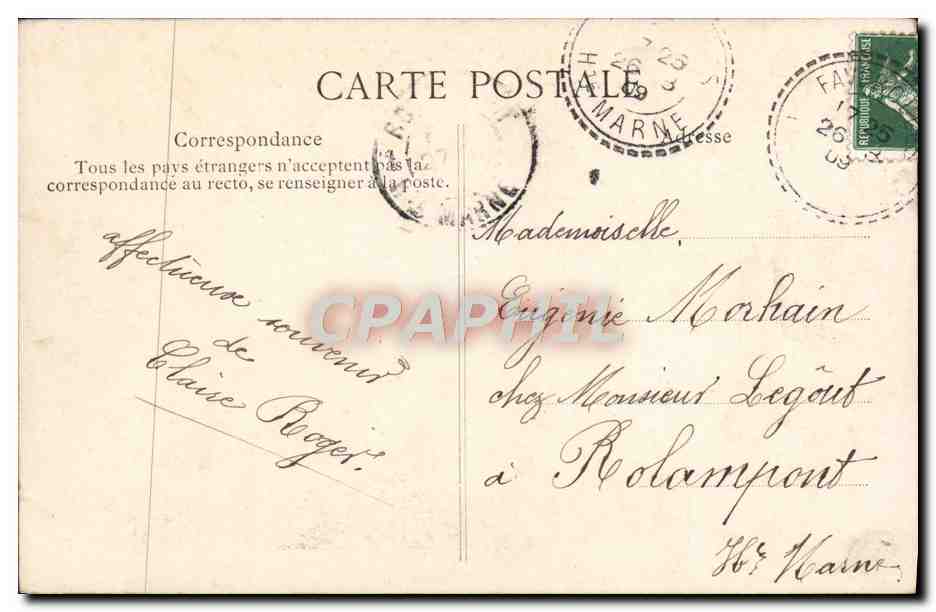 CARTE POSTALE
Correspondance
Tous les pays étrangers n'acceptent pas la
correspondance au recto, se renseigner à la poste.
Adresse
REPUBLIQUE FRANÇAISE
7 25
26 3
09
HTE MARNE
FAV
17 25
26 3
09
MARNE
affectueux souvenir
de
Claire Roger
Mademoiselle,
Eugenie Morhain
chez Monsieur Legôut
à Rolampont
Hte Marne
CPAPHIL